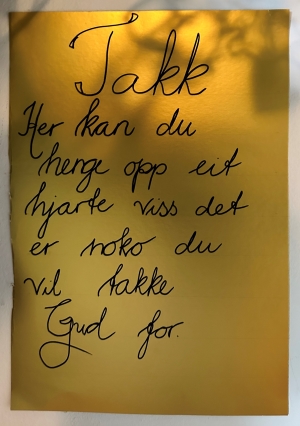 Takk
Her kan du
henge opp eit
hjarte viss det
er noko du
vil takke
Gud for.